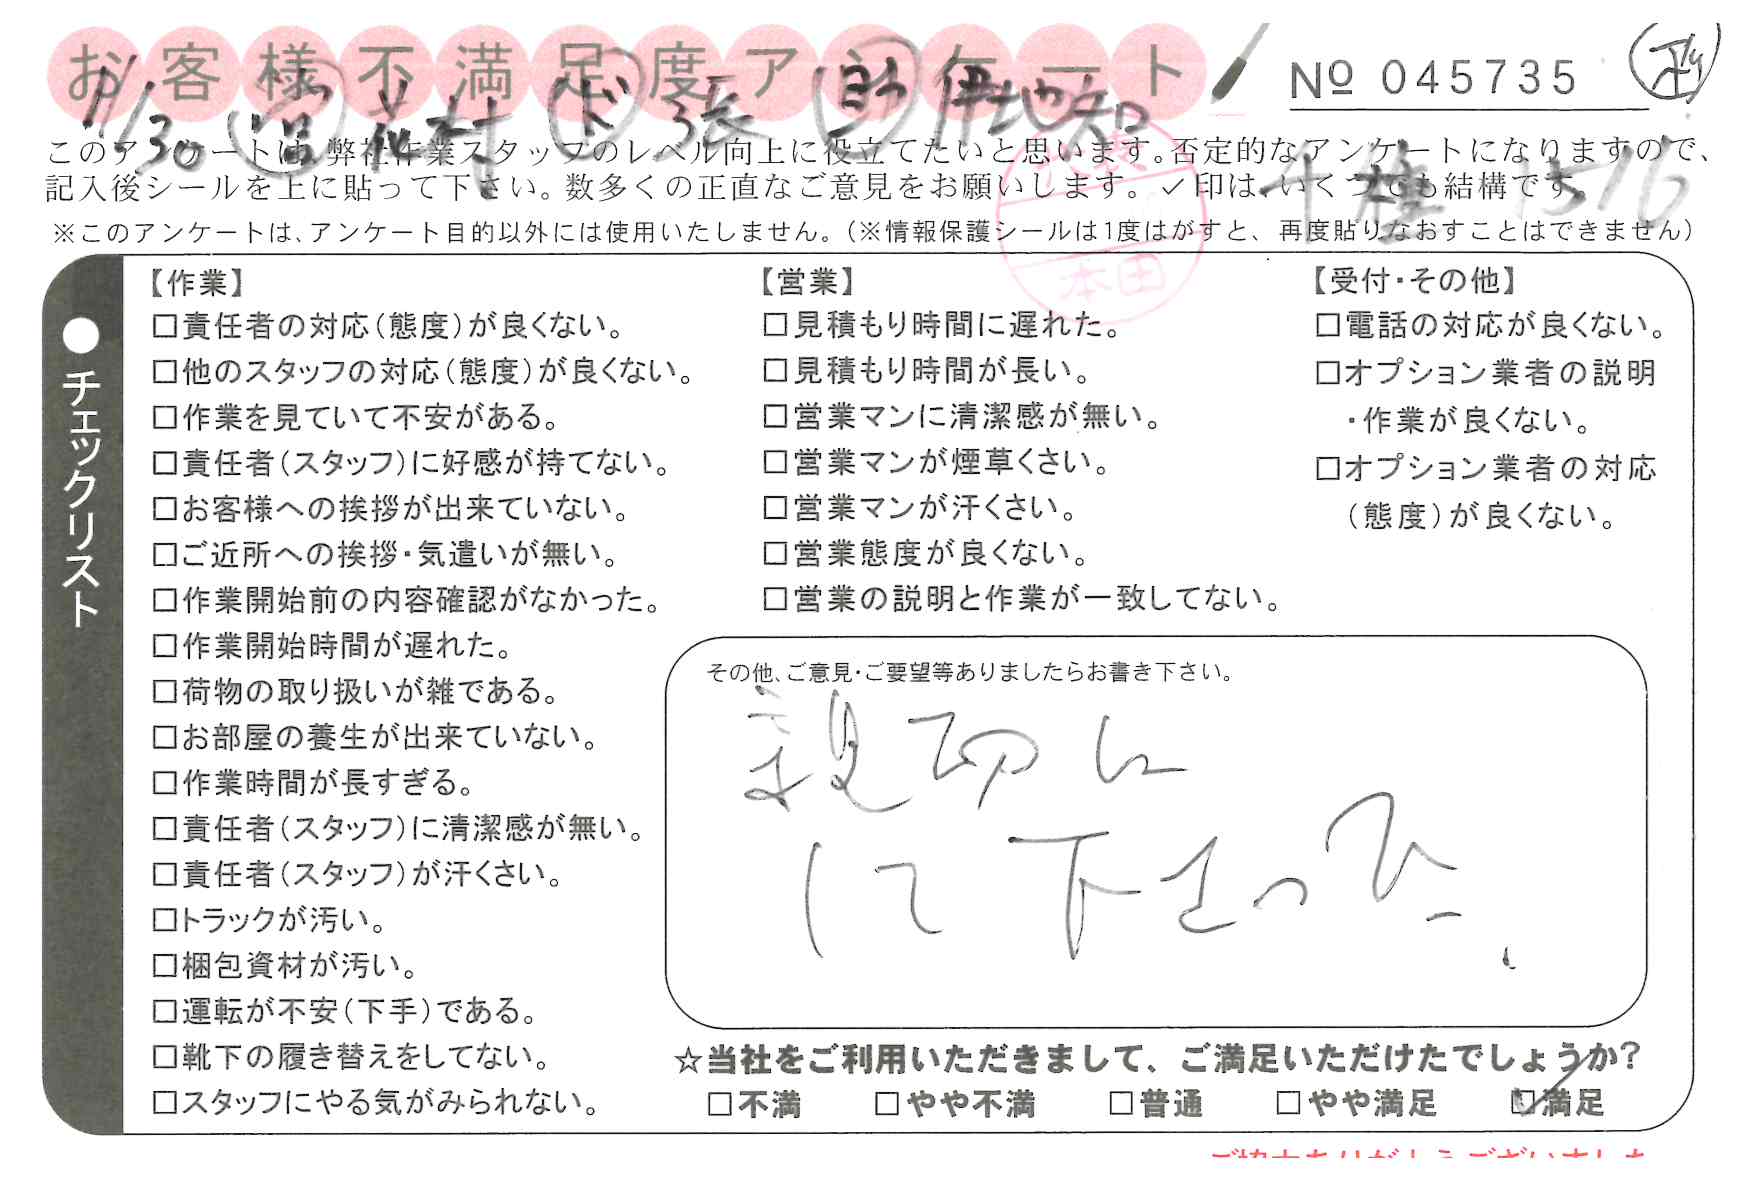 お客様不満足度アンケート
№ 045735
11/30 ド 張 助 伊地知
このアンケートは、弊社作業スタッフのレベル向上に役立てたいと思います。否定的なアンケートになりますので、
記入後シールを上に貼って下さい。数多くの正直なご意見をお願いします。✓印は、いくつでも結構です。
※このアンケートは、アンケート目的以外には使用いたしません。(※情報保護シールは1度はがすと、再度貼りなおすことはできません)
本田
●チェックリスト
【作業】
□責任者の対応(態度)が良くない。
□他のスタッフの対応(態度)が良くない。
□作業を見ていて不安がある。
□責任者(スタッフ)に好感が持てない。
□お客様への挨拶が出来ていない。
□ご近所への挨拶・気遣いが無い。
□作業開始前の内容確認がなかった。
□作業開始時間が遅れた。
□荷物の取り扱いが雑である。
□お部屋の養生が出来ていない。
□作業時間が長すぎる。
□責任者(スタッフ)に清潔感が無い。
□責任者(スタッフ)が汗くさい。
□トラックが汚い。
□梱包資材が汚い。
□運転が不安(下手)である。
□靴下の履き替えをしてない。
□スタッフにやる気がみられない。
【営業】
□見積もり時間に遅れた。
□見積もり時間が長い。
□営業マンに清潔感が無い。
□営業マンが煙草くさい。
□営業マンが汗くさい。
□営業態度が良くない。
□営業の説明と作業が一致してない。
【受付・その他】
□電話の対応が良くない。
□オプション業者の説明
・作業が良くない。
□オプション業者の対応
(態度)が良くない。
その他、ご意見・ご要望等ありましたらお書き下さい。
親切に
して下さった、
☆当社をご利用いただきまして、ご満足いただけたでしょうか?
□不満 □やや不満 □普通 □やや満足 ☑満足
ご協力ありがとうございました